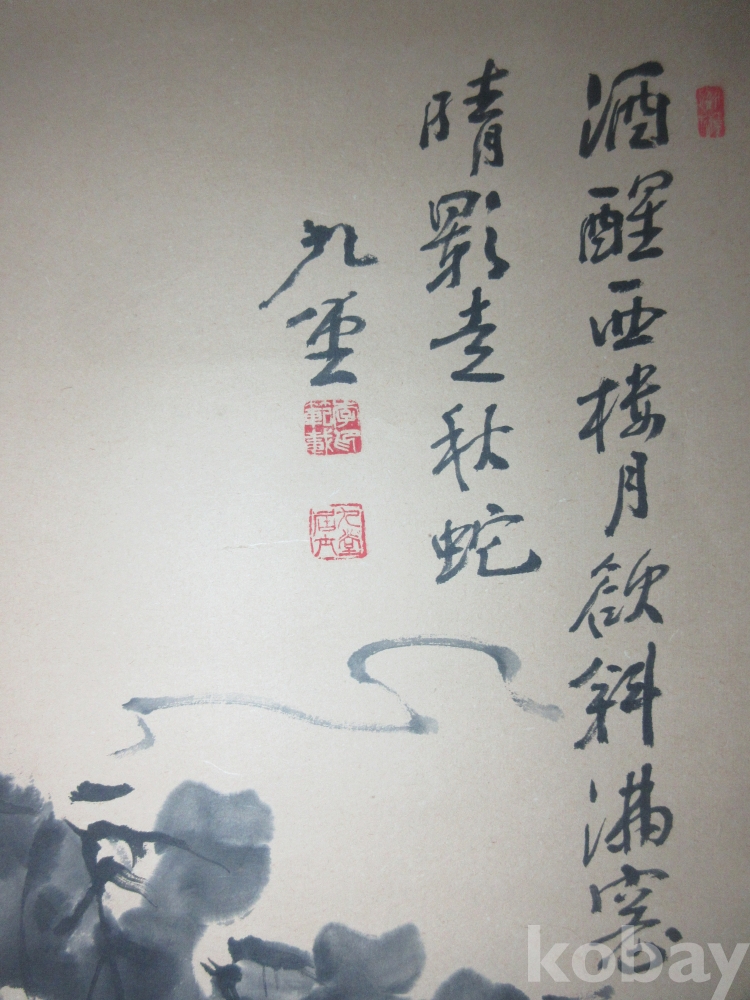 酒醒西樓月欲斜滿窓
晴影走秋蛇
九堂
kobay